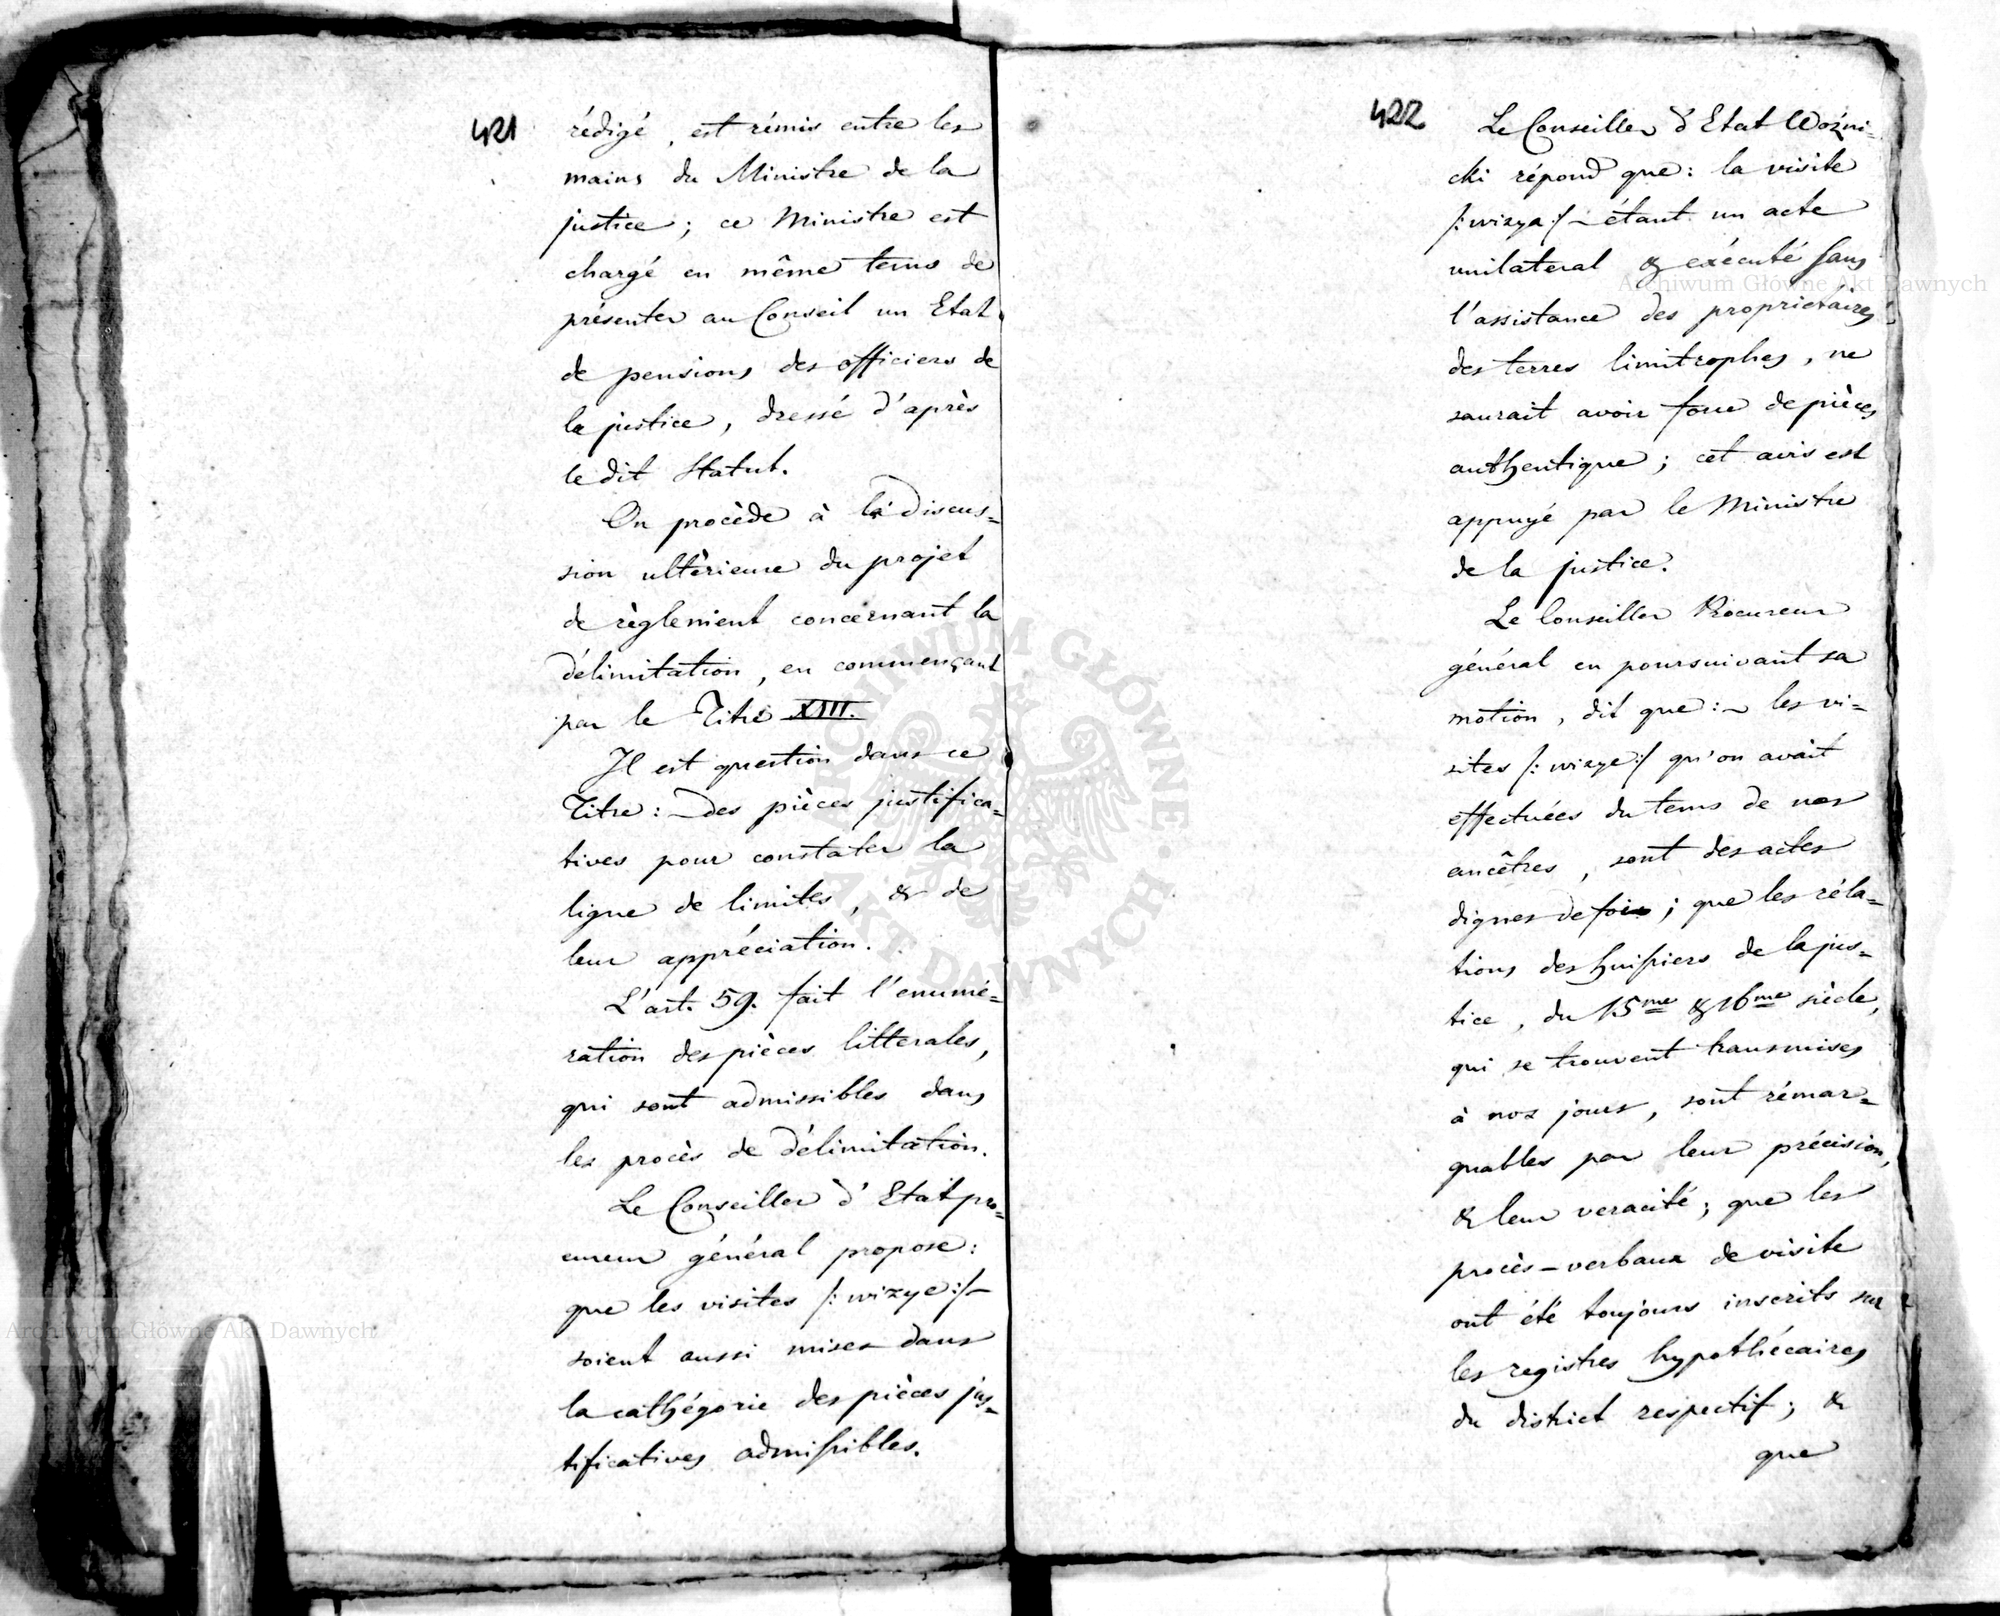 421
rédigé, est rémis entre les
mains du Ministre de la
justice; ce Ministre est
chargé en même tems de
présenter au Conseil un Etat
de pensions des officiers de
la justice, dressé d'après
le dit Statut.
On procède à la discus=
sion ultèrieure du projet
de règlement concernant la
délimitation, en commençant
par le Titre XIII.
Il est question dans ce
Titre: des pièces justifica=
tives pour constater la
ligne de limites, & de
leur appréciation.
L'art. 59. fait l'enumé=
ration des pièces litterales,
qui sont admissibles dans
les procès de délimitation.
Le Conseiller d'Etat pro=
cureur général propose:
que les visites /: wizye :/
soient aussi mises dans
la cathégorie des pièces jus=
tificatives admissibles.
422
Le Conseiller d'Etat Woźni=
cki répond que: la visite
/: wizya :/ étant un acte
unilateral & exécuté sans
l'assistance des proprietaires
des terres limitrophes, ne
saurait avoir force de pièces
authentique; cet avis est
appuyé par le Ministre
de la justice.
Le Conseiller Procureur
général en poursuivant sa
motion, dit que: les vi=
sites /: wizye :/ qu'on avait
effectuées du tems de nos
ancêtres, sont des actes
dignes de foi; que les réla=
tions des huissiers de la jus=
tice, du 15me & 16me siècle,
qui se trouvent transmises
à nos jours, sont rémar=
quables par leur précision,
& leur veracité; que les
procès-verbaux de visite
ont été toujours inscrits sur
les registres hypothécaires
du district respectif; &
que
Archiwum Główne Akt Dawnych
Archiwum Główne Akt Dawnych
ARCHIWUM GŁÓWNE AKT DAWNYCH